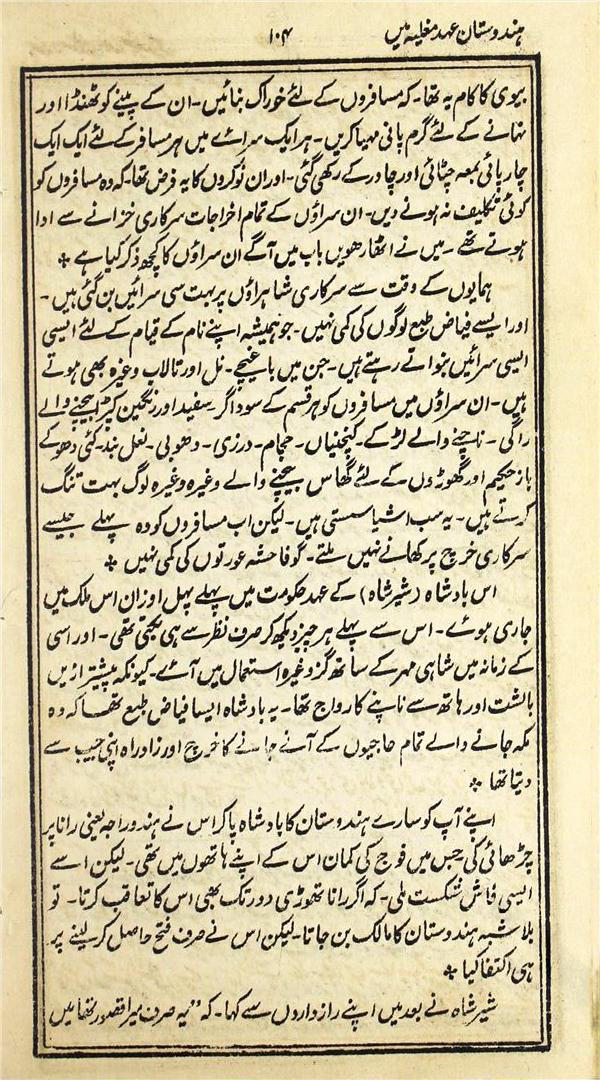 ہندوستان عہد مغلیہ میں ۱۰۴
بیوی کا کام یہ تھا۔ کہ مسافروں کے لئے خوراک بنائیں۔ ان کے پینے کو ٹھنڈا اور
نہانے کے لئے گرم پانی مہیا کریں۔ ہر ایک سرائے میں ہر مسافر کے لئے ایک ایک
چارپائی بمعہ چٹائی اور چادر کے رکھی گئی۔ اور ان نوکروں کا یہ فرض تھا۔ کہ وہ مسافروں کو
کوئی تکلیف نہ ہونے دیں۔ ان سراؤں کے تمام اخراجات سرکاری خزانے سے ادا
ہوتے تھے۔ میں نے اٹھارھویں باب میں آگے ان سراؤں کا کچھ ذکر کیا ہے ٭
ہمایوں کے وقت سے سرکاری شاہراؤں پر بہت سی سرائیں بن گئی ہیں۔
اور ایسے فیاض طبع لوگوں کی کمی نہیں۔ جو ہمیشہ اپنے نام کے قیام کے لئے ایسی
ایسی سرائیں بنواتے رہتے ہیں۔ جن میں باغیچے۔ نل اور تالاب وغیرہ بھی ہوتے
ہیں۔ ان سراؤں میں مسافروں کو ہر قسم کے سوداگر۔ سفید اور رنگین کپڑا بیچنے والے
راگی۔ ناچنے والے لڑکے۔ کنچنیاں۔ حجام۔ درزی۔ دھوبی۔ نعل بند۔ کئی دھوکے
باز حکیم اور گھوڑوں کے لئے گھاس بیچنے والے وغیرہ وغیرہ لوگ بہت تنگ
کرتے ہیں۔ یہ سب اشیا سستی ہیں۔ لیکن اب مسافروں کو وہ پہلے جیسے
سرکاری خرچ پر کھانے نہیں ملتے۔ گو فاحشہ عورتوں کی کمی نہیں ٭
اس بادشاہ (شیر شاہ) کے عہد حکومت میں پہلے پہل اوزان اس ملک میں
جاری ہوئے۔ اس سے پہلے ہر چیز دیکھ کر صرف نظر سے ہی بکتی تھی۔ اور اسی
کے زمانہ میں شاہی مہر کے ساتھ گز وغیرہ استعمال میں آئے۔ کیونکہ پیشتر ازیں
بالشت اور ہاتھ سے ناپنے کا رواج تھا۔ یہ بادشاہ ایسا فیاض طبع تھا کہ وہ
مکہ جانے والے تمام حاجیوں کے آنے جانے کا خرچ اور زادراہ اپنی جیب سے
دیتا تھا ٭
اپنے آپ کو سارے ہندوستان کا بادشاہ پا کر اس نے ہندو راجہ یعنی رانا پر
چڑھائی کی جس میں فوج کی کمان اس کے اپنے ہاتھوں میں تھی۔ لیکن اسے
ایسی فاش شکست ملی۔ کہ اگر رانا تھوڑی دور تک بھی اس کا تعاقب کرتا۔ تو
بلا شبہ ہندوستان کا مالک بن جاتا۔ لیکن اس نے صرف فتح حاصل کر لینے پر
ہی اکتفا کیا ٭
شیر شاہ نے بعد میں اپنے رازداروں سے کہا۔ کہ "یہ صرف میرا قصور تھا میں